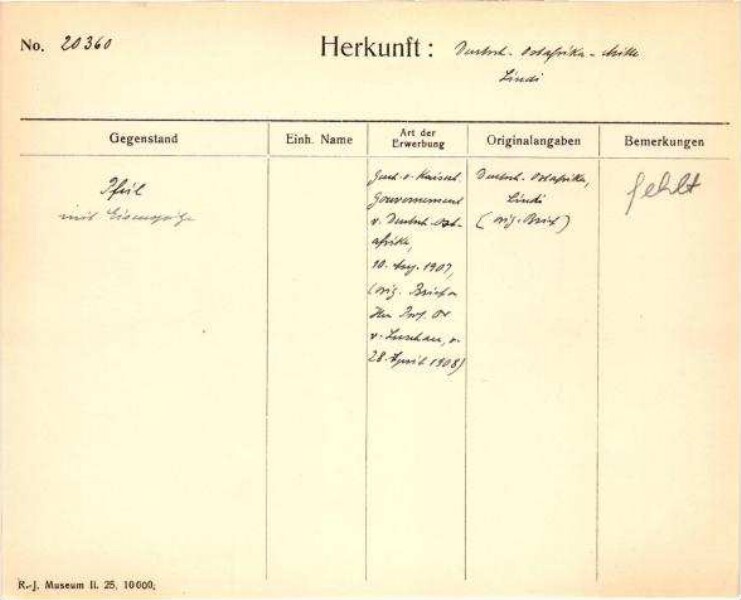 No. 20360
Herkunft: Deutsch. Ostafrika - Mitte
Lindi
Gegenstand
Einh. Name
Art der Erwerbung
Originalangaben
Bemerkungen
Pfeil
mit Eisenspitze
Gesch. v. Kaiserl.
Gouvernement
v. Deutsch-Ost-
afrika,
10. Aug. 1907,
(orig. Brief
Prof. Dr
v. Luschan, v.
28. April 1908)
Deutsch. Ostafrika,
Lindi
(orig. Brief)
fehlt
R.-J. Museum II. 25, 10000.